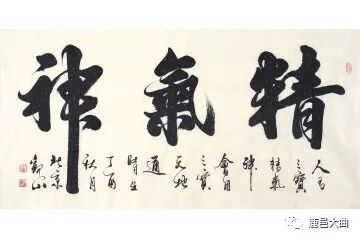 精氣神
人有
三寶
精氣
神
會用
三寶
天地
通
時在
丁酉
秋月
北京
鹿邑大曲